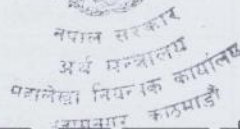 नेपाल सरकार
अर्थ मन्त्रालय
महालेखा नियन्त्रक कार्यालय
अनामनगर काठमाडौं